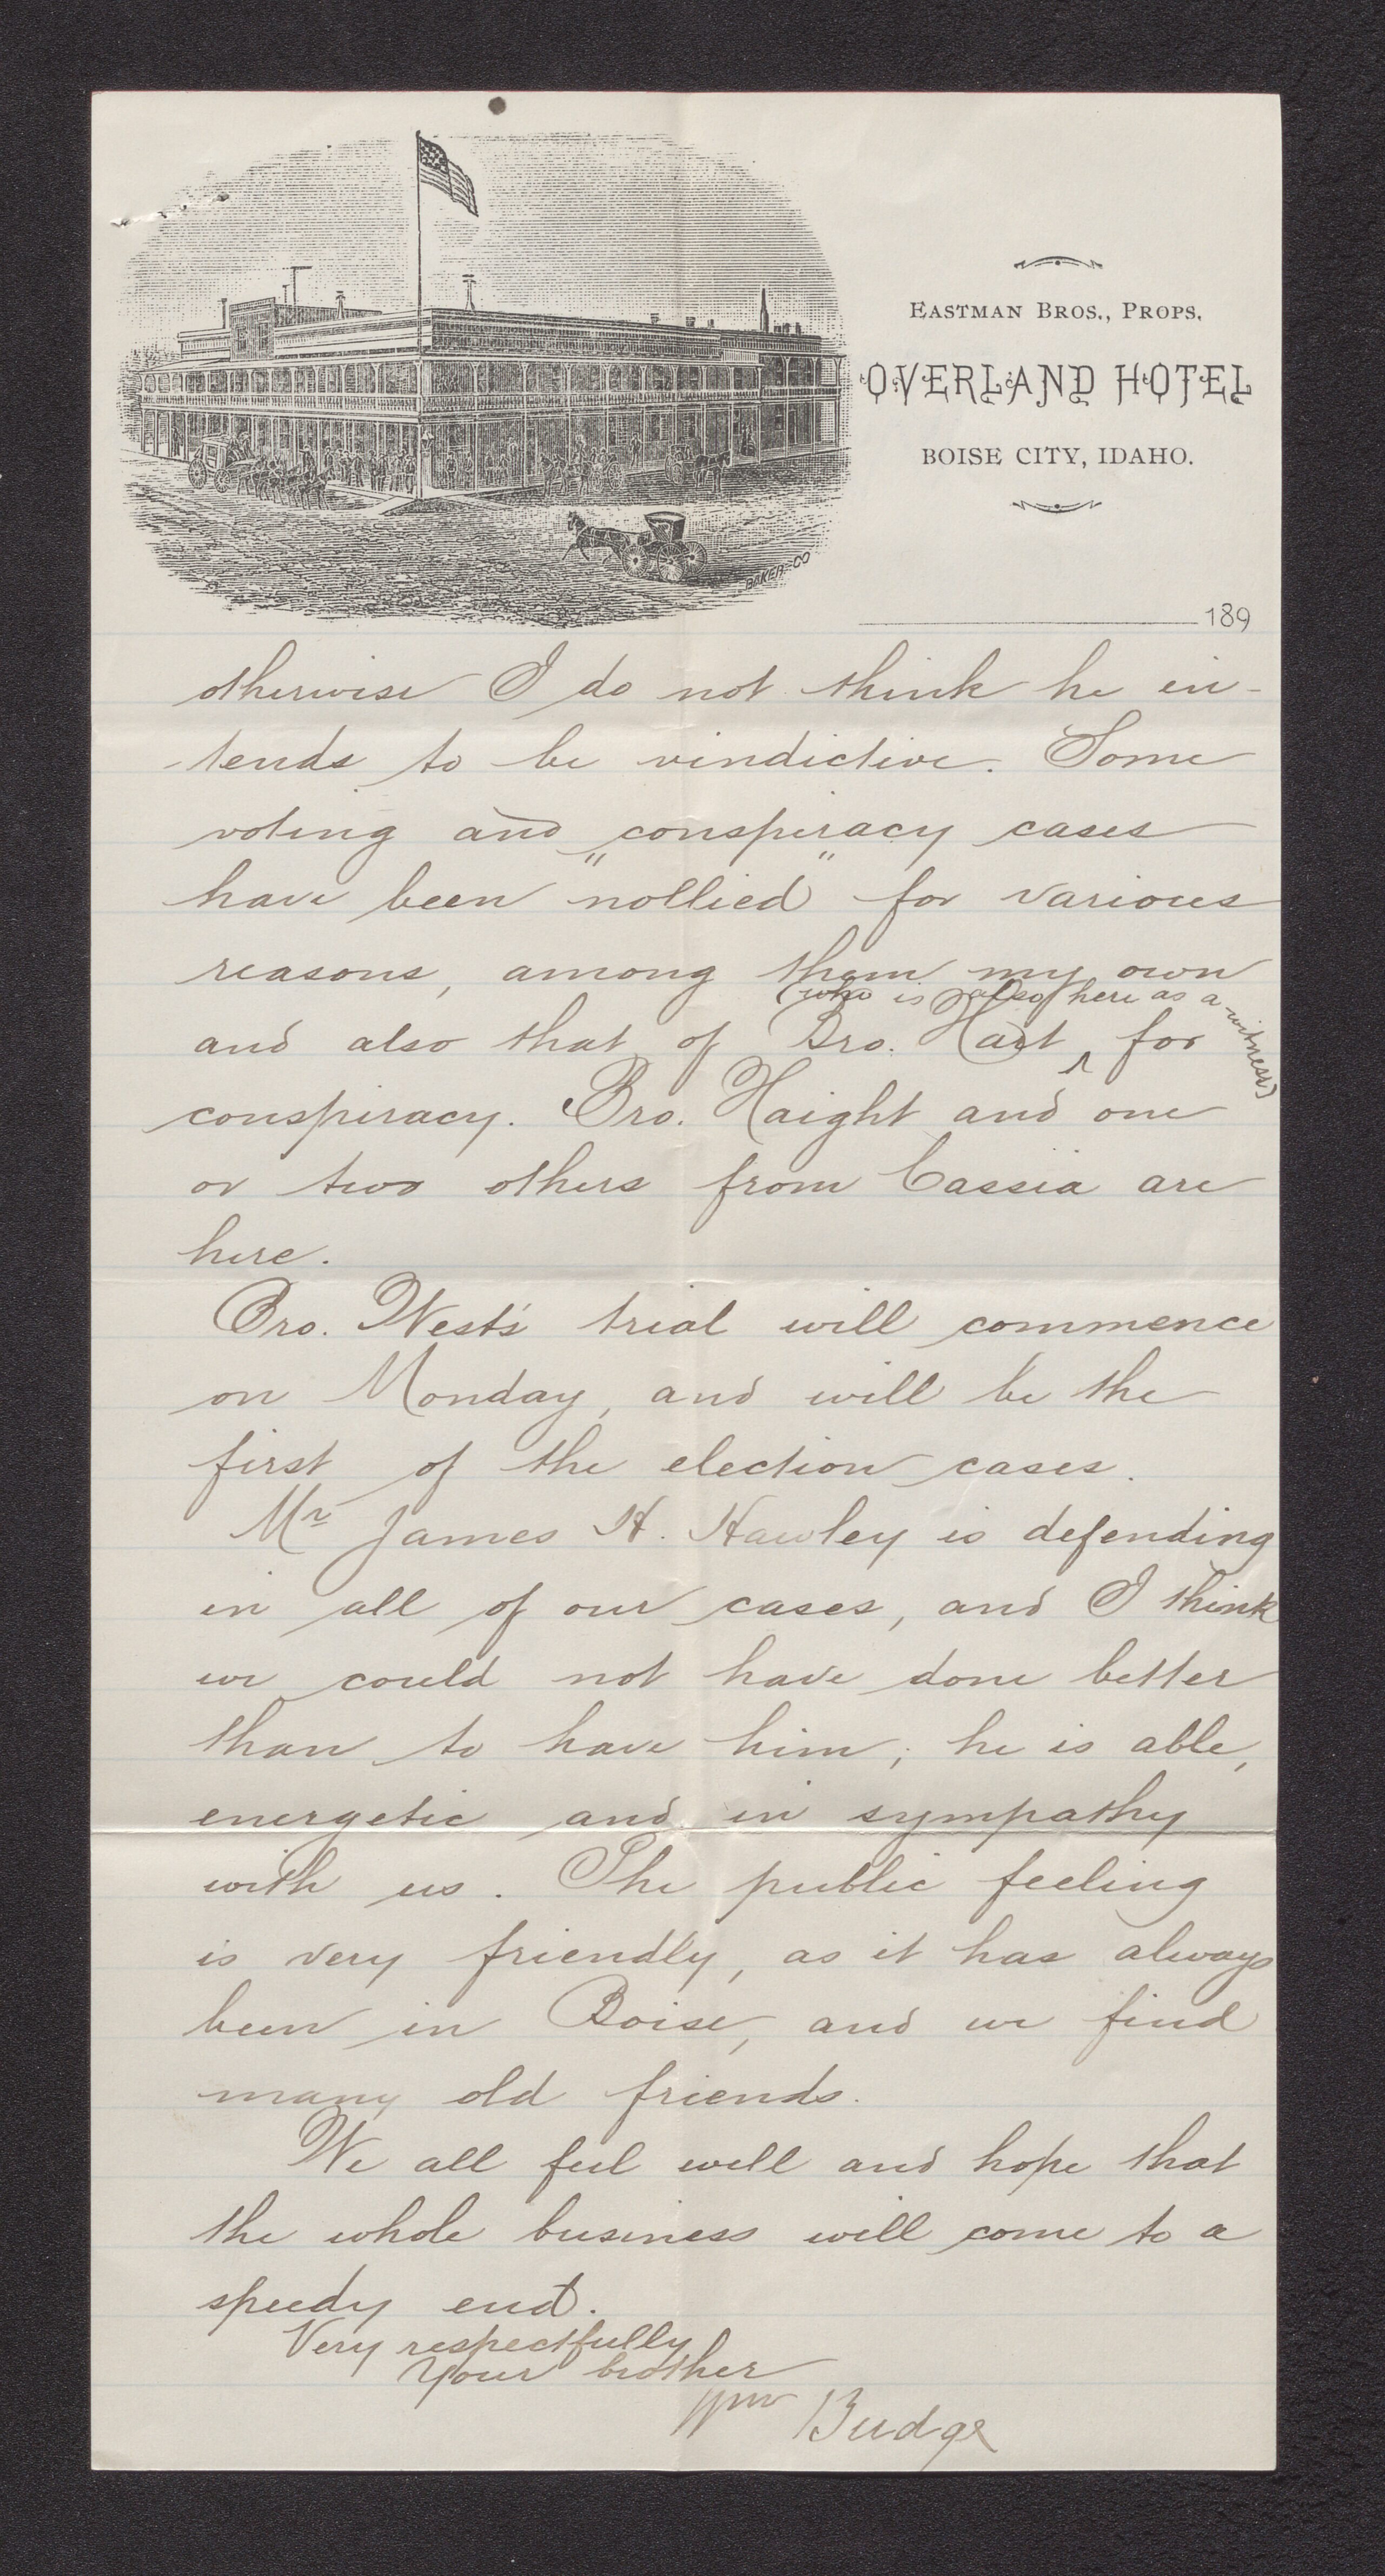 EASTMAN BROS., PROPS.
OVERLAND HOTEL
BOISE CITY, IDAHO.
189
BAKER-CO
otherwise I do not think he in-
tends to be vindictive. Some
voting and conspiracy cases
have been "nollied" for various
reasons, among them my own
(who is also here as a witness)
and also that of Bro. Hart ^ for
conspiracy. Bro. Haight and one
or two others from Cassia are
here.
Bro. West's trial will commence
on Monday, and will be the
first of the election cases.
Mr James H. Hawley is defending
in all of our cases, and I think
we could not have done better
than to have him; he is able,
energetic and in sympathy
with us. The public feeling
is very friendly, as it has always
been in Boise, and we find
many old friends.
We all feel well and hope that
the whole business will come to a
speedy end.
Very respectfully
Your brother
Wm Budge